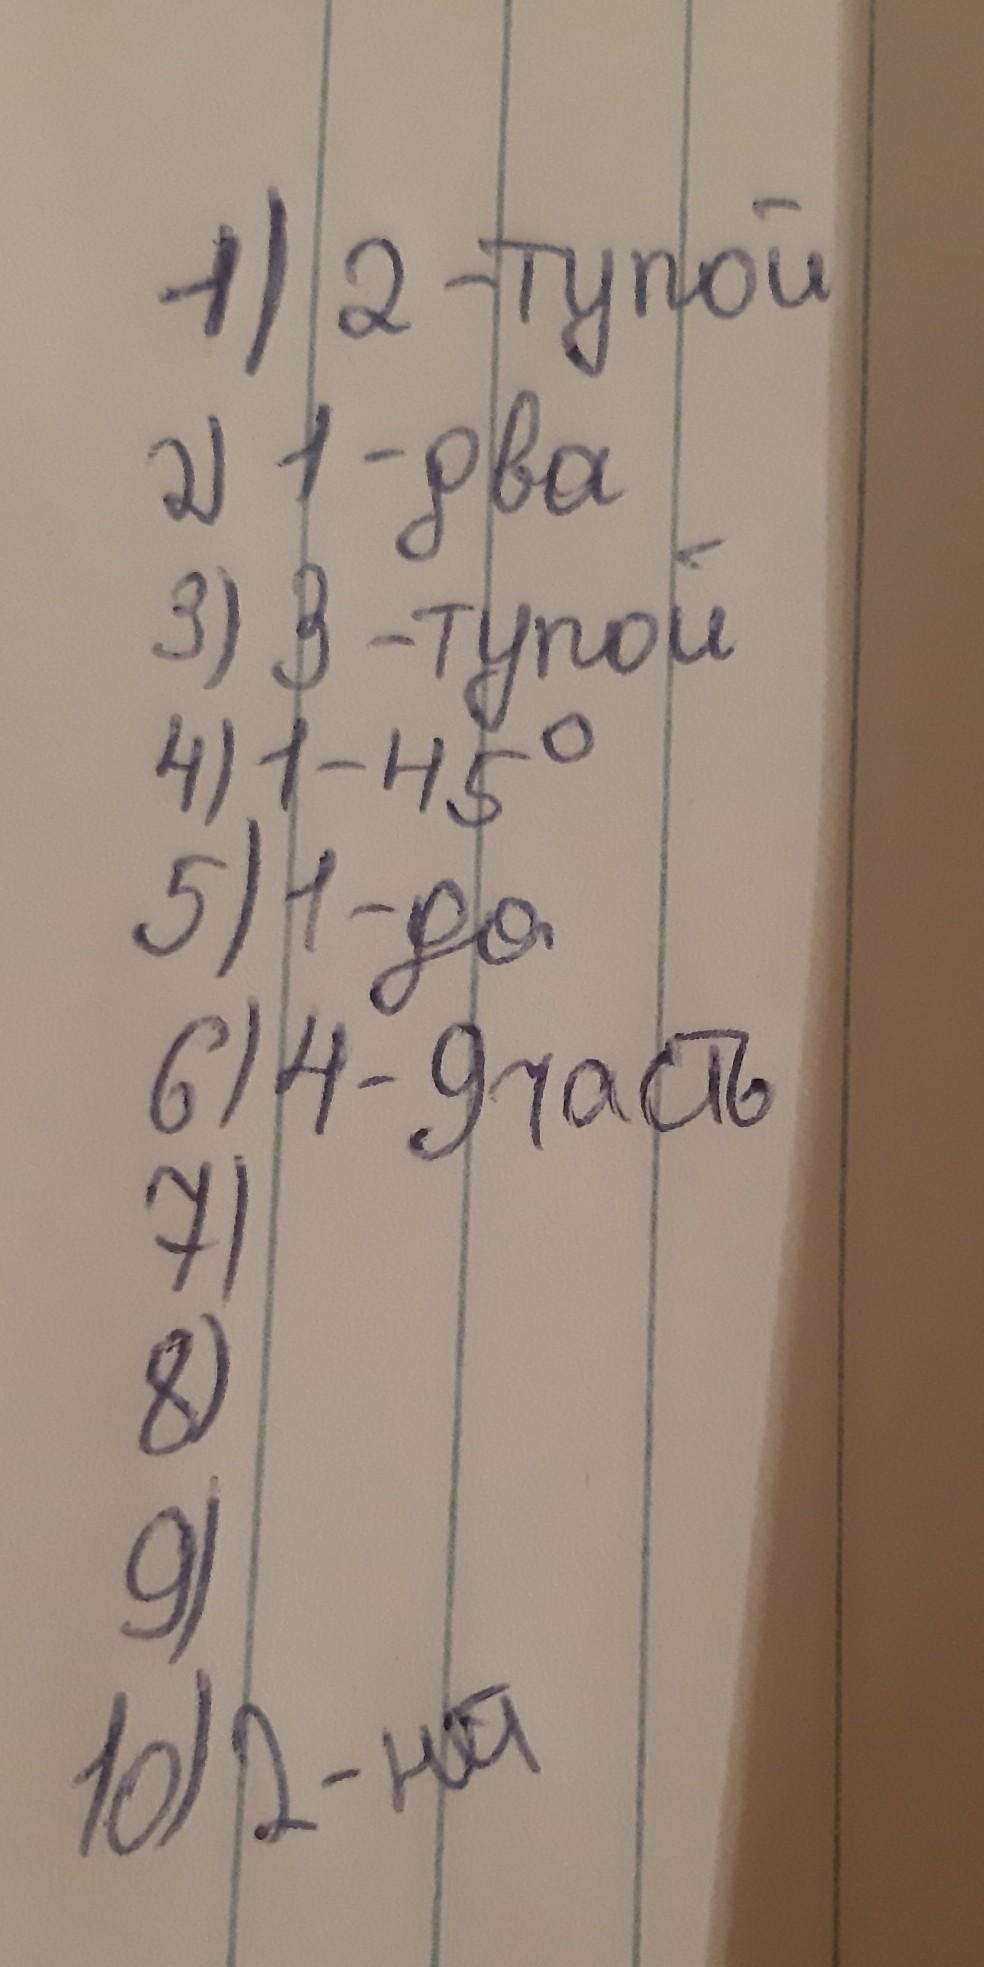 1) 2 - тупой
2) 1 - два
3) 3 - тупой
4) 1 - 45°
5) 1 - да
6) 4 - 9 часть
7)
8)
9)
10) 2 -